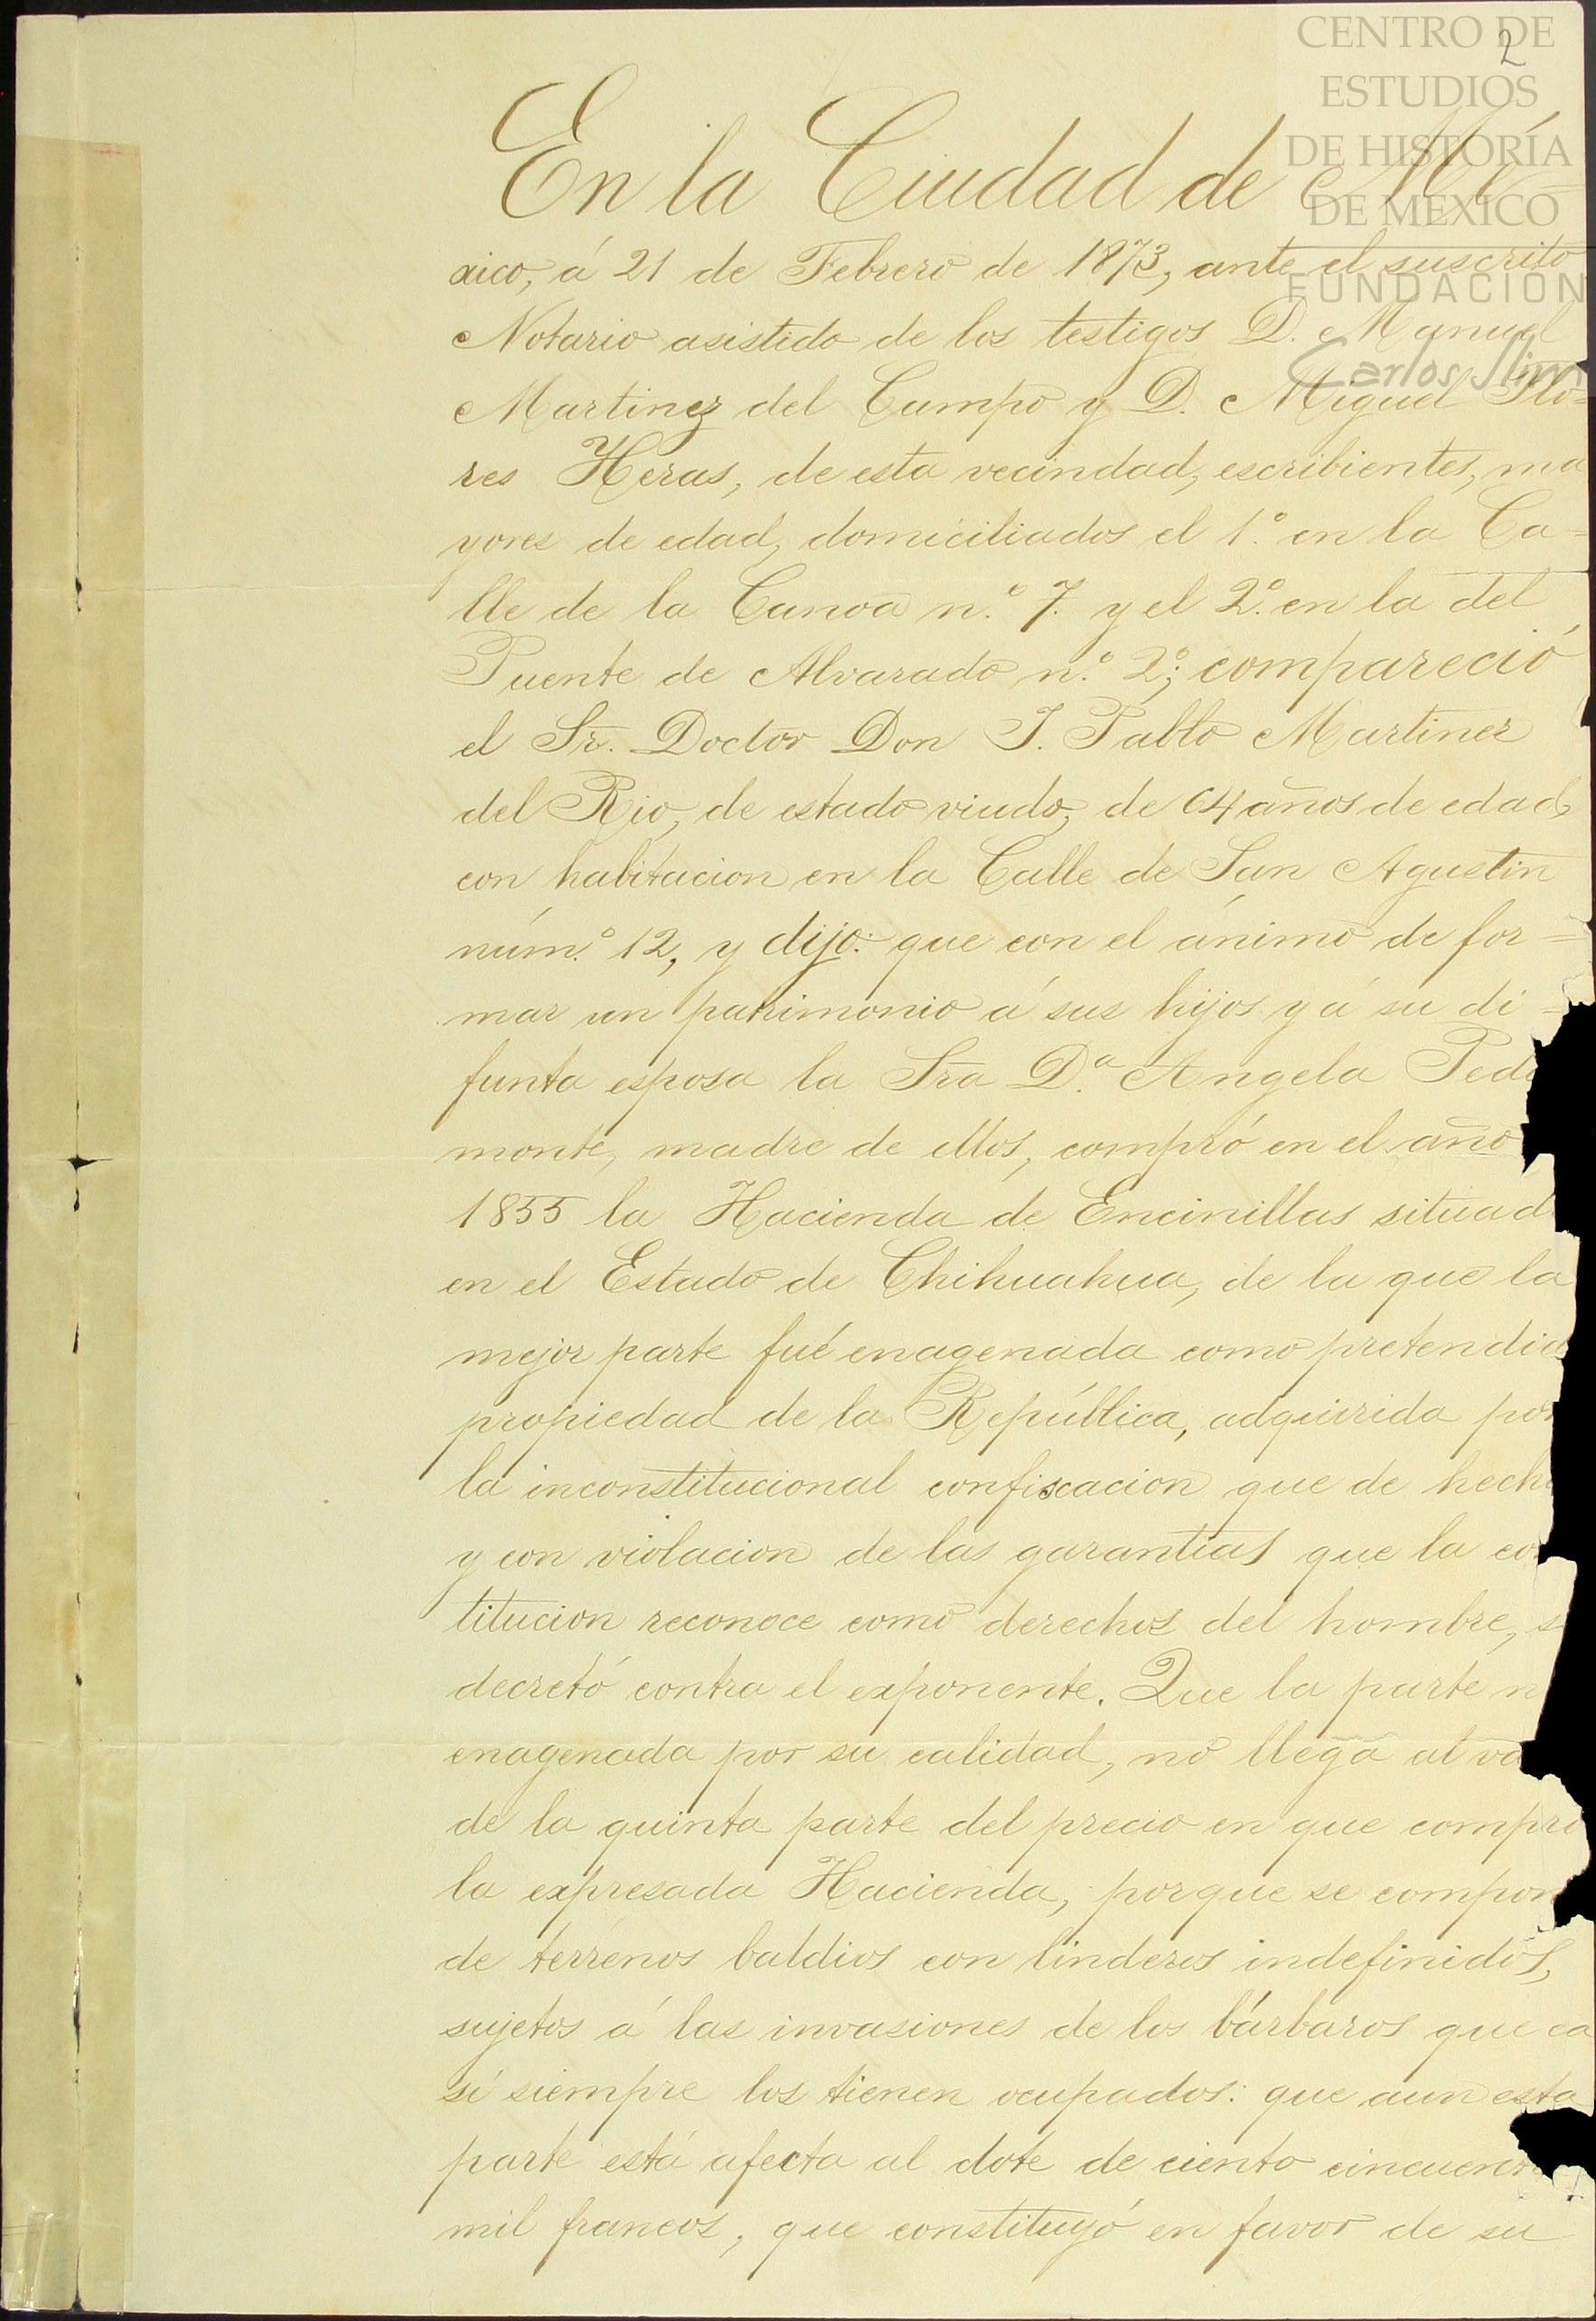 CENTRO DE
ESTUDIOS
DE HISTORÍA
DE MEXICO
FUNDACIÓN
Carlos Slim
2
En la Ciudad de Mé
xico, á 21 de Febrero de 1873, ante el suscrito
Notario asistido de los testigos D. Manuel
Martinez del Campo y D. Miguel Flo=
res Heras, de esta vecindad, escribientes, ma
yores de edad, domiciliados el 1.º en la Ca=
lle de la Canoa n.º 7. y el 2.º en la del
Puente de Alvarado n.º 2º; compareció
el Sr. Doctor Don J. Pablo Martinez
del Rio, de estado viudo, de 64 años de edad,
con habitacion en la Calle de San Agustin
núm.º 12, y dijo: que con el ánimo de for=
mar un patrimonio á sus hijos y á su di=
funta esposa la Sra D.ª Angela Ped
monte, madre de ellos, compró en el año
1855 la Hacienda de Encinillas situad
en el Estado de Chihuahua, de la que la
mejor parte fué enagenada como pretendid
propiedad de la República, adquirida por
la inconstitucional confiscacion que de hech
y con violacion de las garantias que la co
titucion reconoce como derechos del hombre, s
decretó contra el exponente. Que la parte n
enagenada por su calidad, no llega al va
de la quinta parte del precio en que compró
la expresada Hacienda, porque se compon
de terrenos baldios con linderos indefinidos,
sujetos á las invasiones de los bárbaros que ca
si siempre los tienen ocupados: que aun esta
parte está afecta al dote de ciento cincuent
mil francos, que constituyó en favor de su